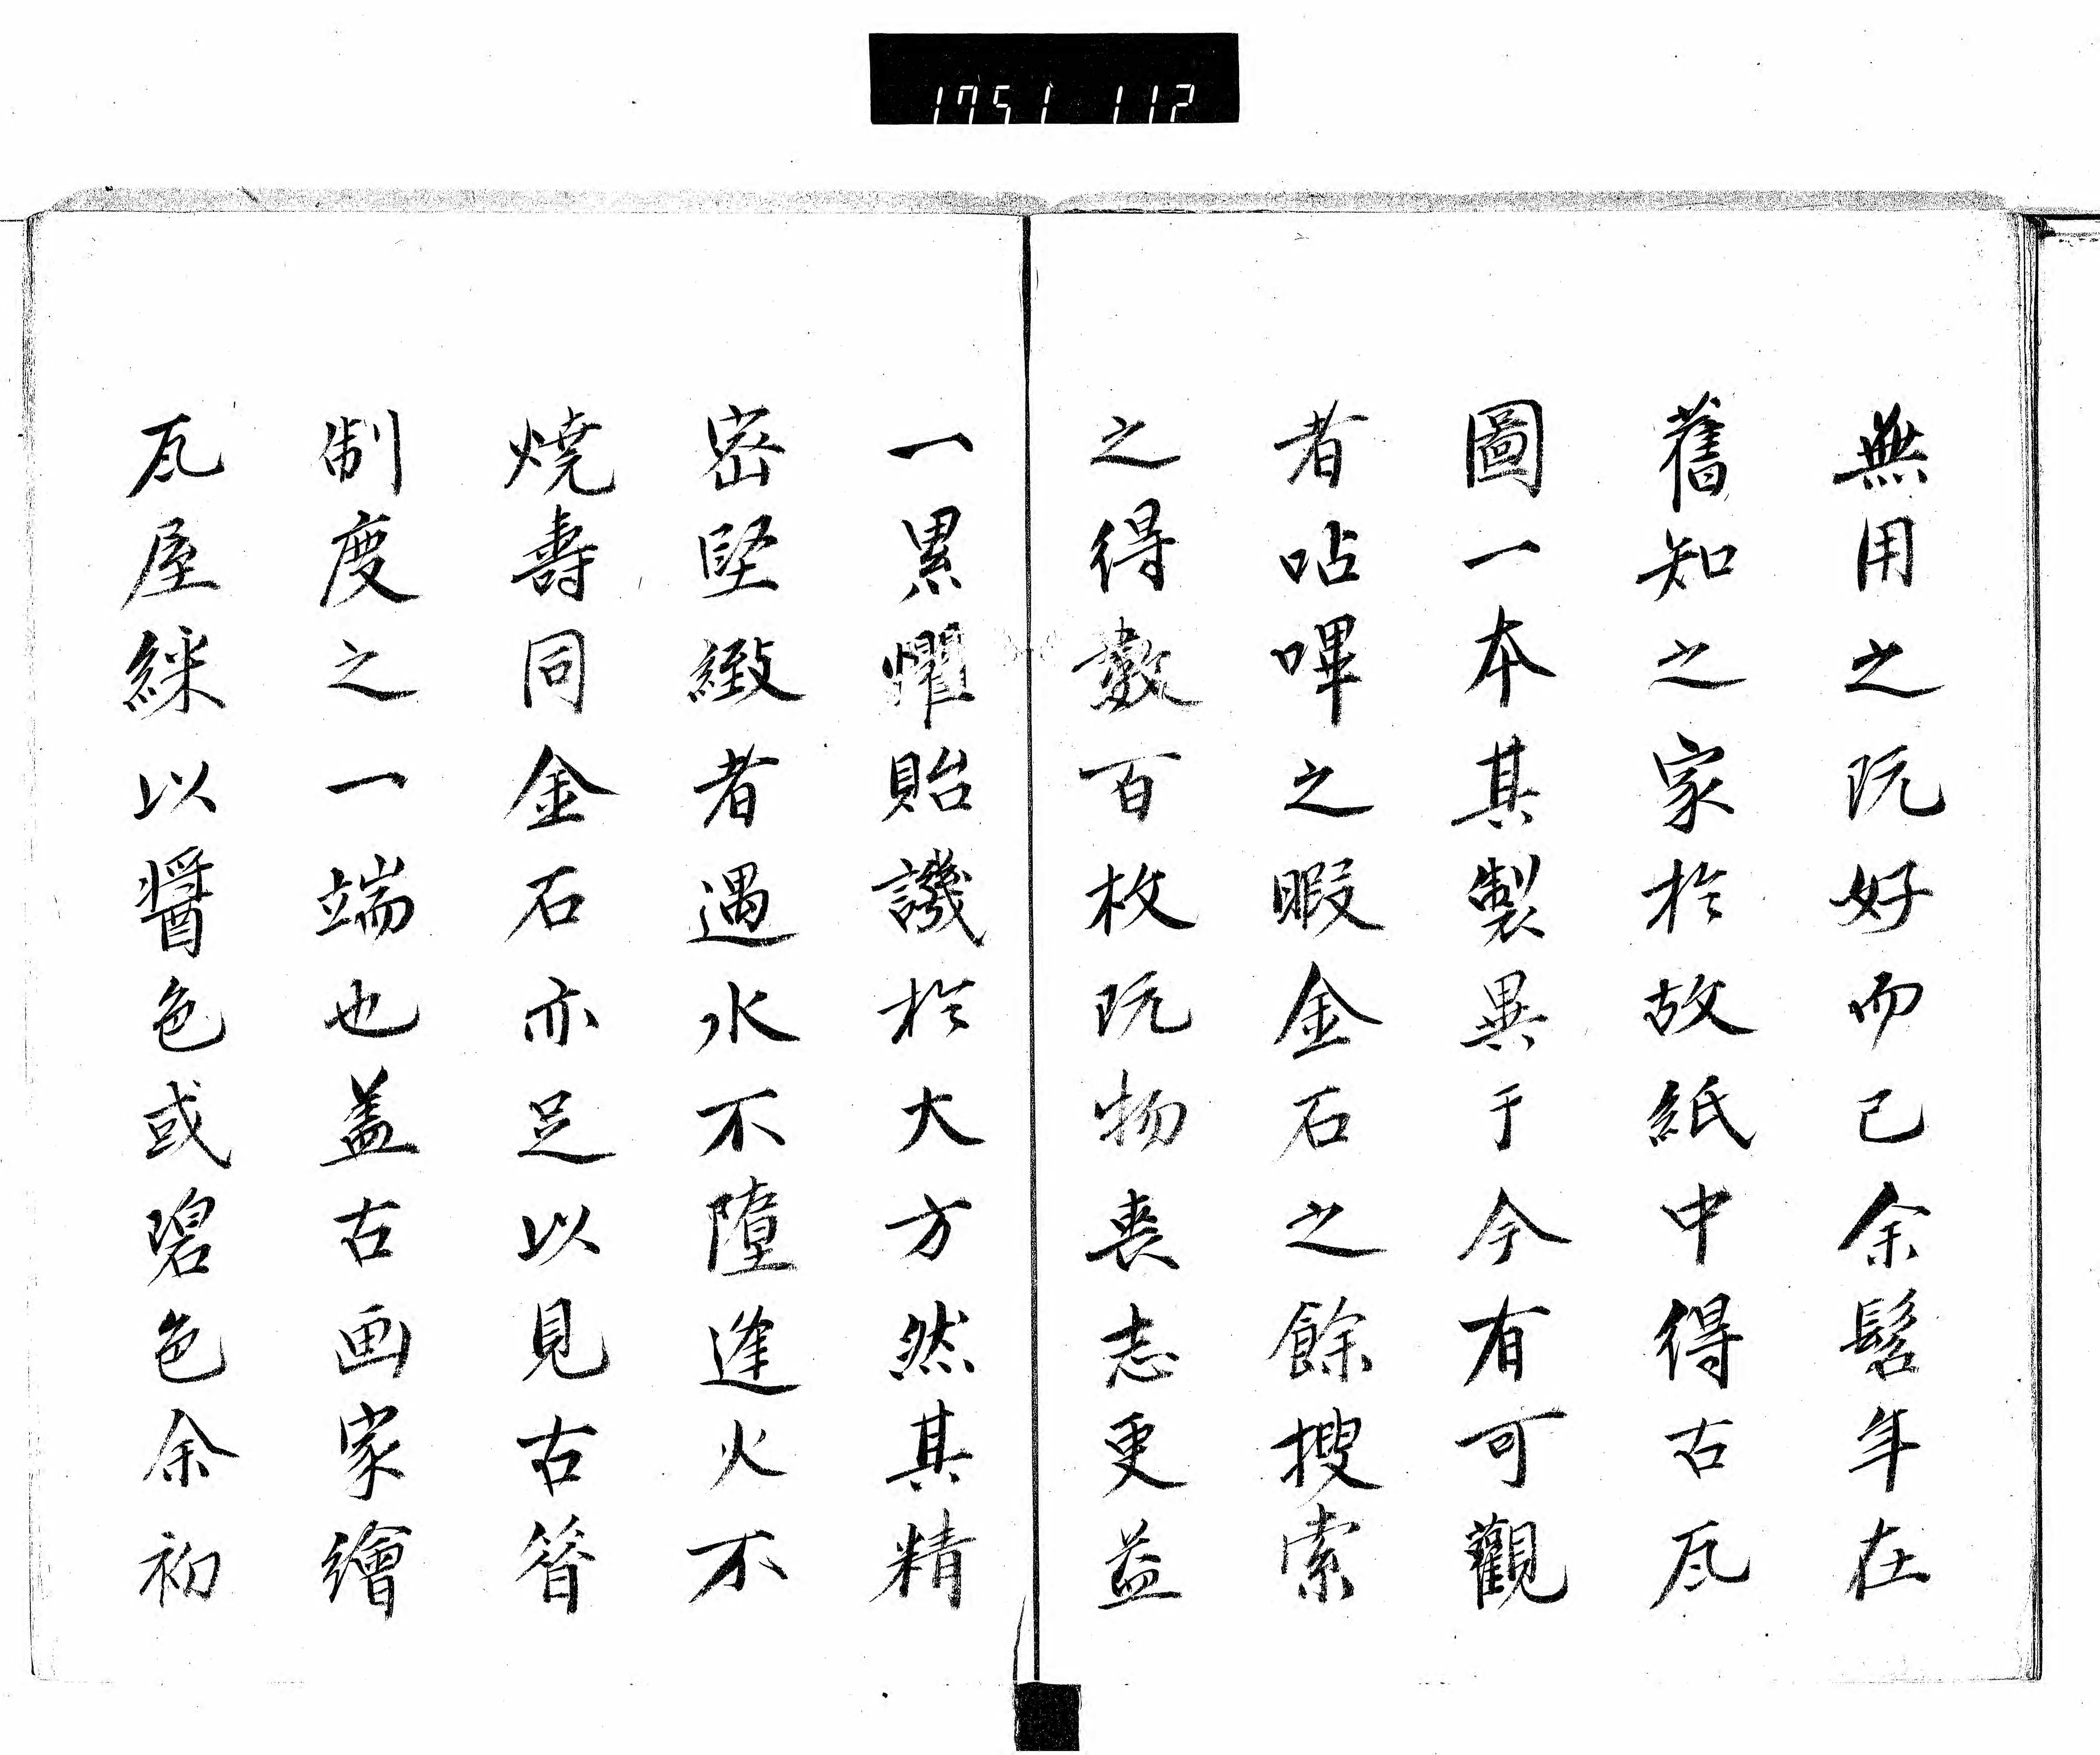 1751 112
無用之玩好而已余髫年在
舊知之家於故紙中得古瓦
圖一本其製異于今有可觀
者呫嗶之暇金石之餘搜索
之得數百枚玩物喪志更益
一累懼貽譏於大方然其精
密堅緻者遇水不障逢火不
燒壽同金石亦足以見古昔
制度之一端也盖古画家繪
瓦屋綵以醤色或碧色余初